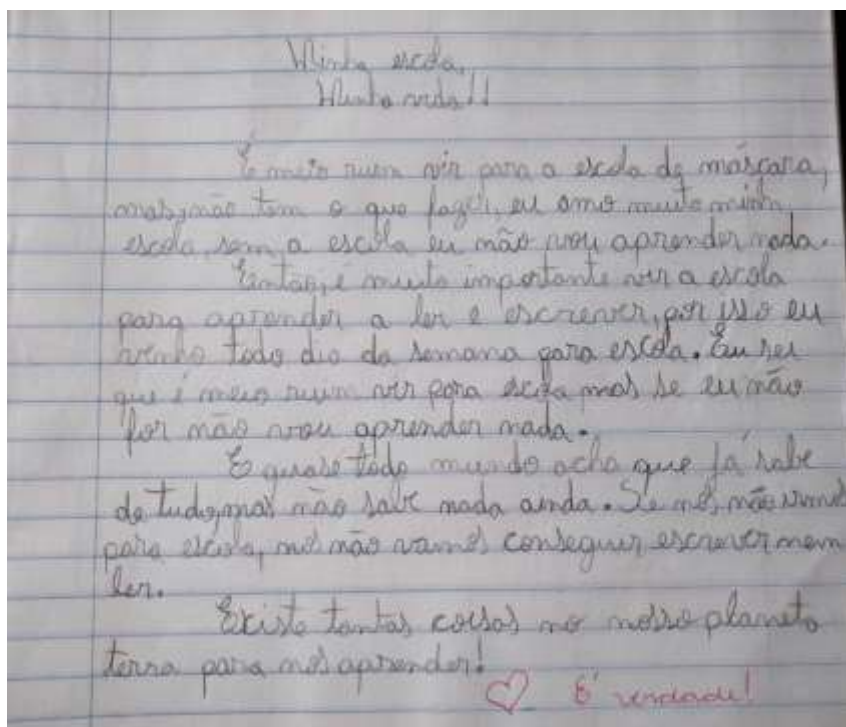 Minha escola,
Minha vida!!
É meio ruim vir para a escola de máscara,
mas, não tem o que fazer, eu amo muito minha
escola, sem a escola eu não vou aprender nada.
Então, é muito importante vir a escola
para aprender a ler e escrever, por isso eu
venho todo dia da semana para escola. Eu sei
que é meio ruim vir para escola mas se eu não
for não vou aprender nada.
E quase todo mundo acha que já sabe
de tudo, mas não sabe nada ainda. Se nós não irmos
para escola, nós não vamos conseguir escrever nem
ler.
Existe tantas coisas no nosso planeta
terra para nós aprender!
É verdade!